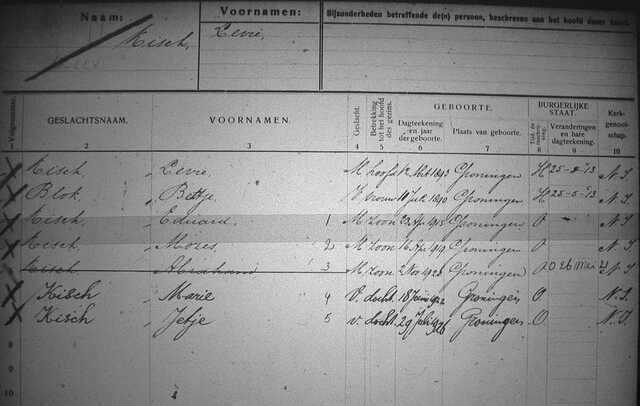 Naam: Voornamen: Bijzonderheden betreffende de(n) persoon, beschreven aan het hoofd dezer kaart.
Kisch, Levie,
Volgnummer. GESLACHTSNAAM. VOORNAMEN. Geslacht. Betrekking tot het hoofd des gezins. GEBOORTE. Dagteekening en jaar der geboorte. Plaats van geboorte. BURGERLIJKE STAAT. Veranderingen en hare dagteekening. Kerkgenootschap.
2 3 4 5 6 7 8 9 10
Kisch, Levie, M hoofd 1893 Groningen H 25-5-'13 N.I.
Blok, Betje, V vrouw 1890 Groningen H 25-5-'13 N.I.
Kisch, Eduard, 1 M zoon 1915 Groningen O N.I.
Kisch, Mozes, 2 M zoon 1919 Groningen O N.I.
Kisch, Abraham 3 M zoon 2 Nov 1920 Groningen O 26 Mei 21 N.I.
Kisch, Marie 4 V. docht. 18 Juni 1922 Groningen O N.I.
Kisch, Jetje 5 v. docht. 29 Juli 1926 Groningen O. N.I.
8
9
10